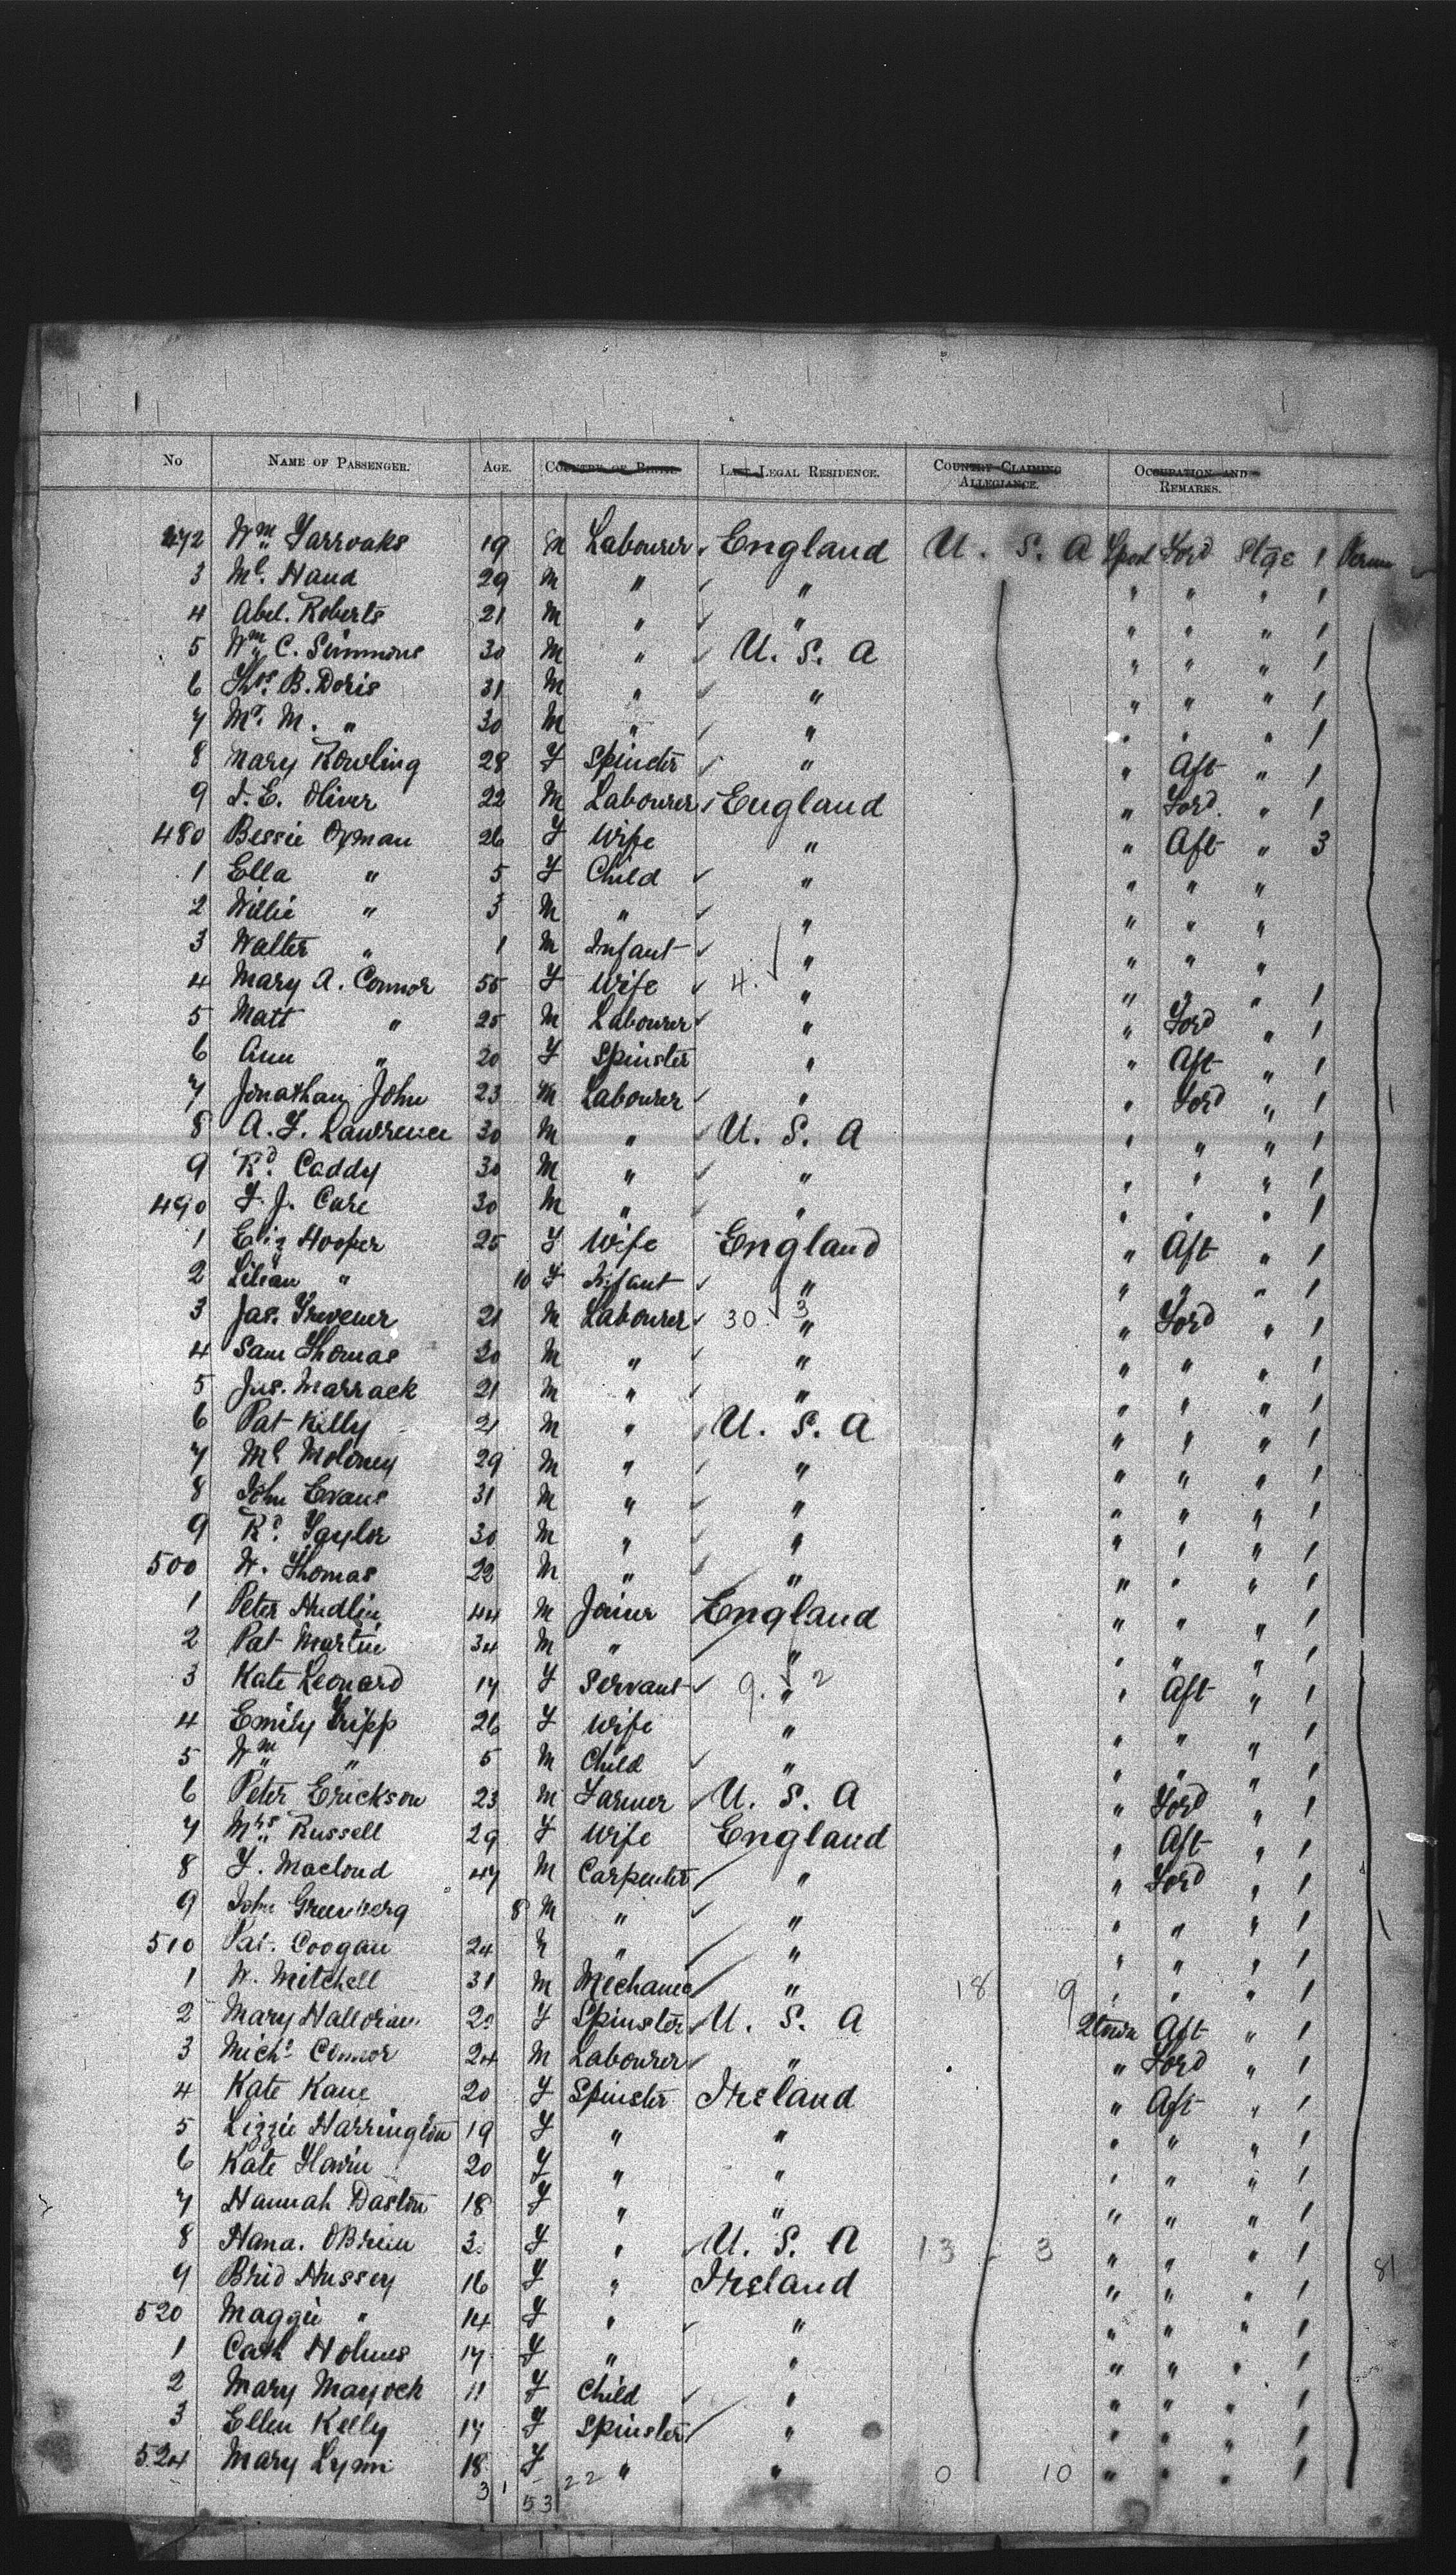 No Name of Passenger. Age. Country of Birth. Last Legal Residence. Country Claiming Allegiance. Occupation and Remarks.
472 Wm Farroaks 19 M Labourer England U. S. A Lpool Ford Stge 1
3 Ml. Hand 29 M " " " " " 1
4 Abel. Roberts 21 M " " " " " 1
5 Wm C. Simmons 30 M " U. S. A " " " 1
6 Thos. B. Doris 31 M " " " " " 1
7 Mr. M. " 30 M " " " " " 1
8 Mary Rowling 28 F Spinster " " Aft " 1
9 J. E. Oliver 22 M Labourer England " Ford. " 1
480 Bessie Oxman 26 F Wife " " Aft " 3
1 Ella " 5 F Child " " " "
2 Willie " 3 M " " " " "
3 Walter " 1 M Infant " " " "
4 Mary A. Connor 55 F Wife 4. " " " " 1
5 Matt " 25 M Labourer " " Ford " 1
6 Ann " 20 F Spinster " " Aft " 1
7 Jonathan John 23 M Labourer " " Ford " 1
8 A. F. Lawrence 30 M " U. S. A " " " 1
9 Rd. Caddy 30 M " " " " " 1
490 F. J. Care 30 M " " " " " 1
1 Eliz Hooper 25 F Wife England " Aft " 1
2 Lilian " 10 F Infant " " " " 1
3 Jas. Trevener 21 M Labourer 30 3 " " Ford " 1
4 Sam Thomas 20 M " " " " " 1
5 Jas. Marrack 21 M " " " " " 1
6 Pat Kelly 21 M " U. S. A " " " 1
7 Ml Moloney 29 M " " " " " 1
8 John Evans 31 M " " " " " 1
9 Rd. Taylor 30 M " " " " " 1
500 W. Thomas 22 M " " " " " 1
1 Peter Hudlin 44 M Joiner England " " " 1
2 Pat Martin 34 M " " " " " 1
3 Kate Leonard 17 F Servant 9. 2 " " Aft " 1
4 Emily Tripp 26 F Wife " " " " 1
5 Wm " 5 M Child " " " " 1
6 Peter Erickson 23 M Farmer U. S. A " Ford " 1
7 Mrs Russell 29 F Wife England " Aft " 1
8 F. Macloud 47 M Carpenter " " Ford " 1
9 John Greenberg 8 M " " " " " 1
510 Pat. Coogan 24 " " " " " 1
1 W. Mitchell 31 M Mechanic " 18 9 " " " 1
2 Mary Halloran 20 F Spinster U. S. A Qtown Aft " 1
3 Michl Connor 24 M Labourer " " Ford " 1
4 Kate Kane 20 F Spinster Ireland " Aft " 1
5 Lizzie Harrington 19 F " " " " " 1
6 Kate 20 F " " " " " 1
7 Hannah Daslin 18 F " " " " " 1
8 Hana. OBrien 3 F " U. S. A 13 3 " " " 1
9 Brid Hussey 16 F " Ireland " " " 1 81
520 Maggie " 14 F " " " " " 1
1 Cath Holmes 17 F " " " " " 1
2 Mary Mayock 11 F Child " " " " 1
3 Ellen Kelly 17 F Spinster " " " " 1
524 Mary Lynn 18 F " " 0 10 " " " 1
31 22
53